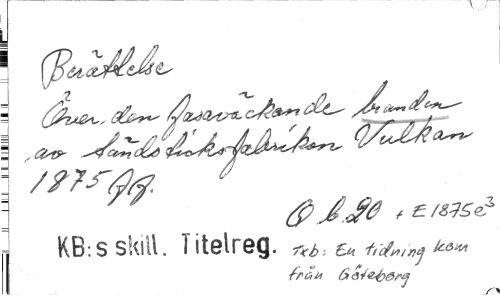 Berättelse
Över den fasaväckande branden
av tändsticksfabriken Vulkan
1875 ff.
Q b. 20 + E 1875 e³
KB:s skill. Titelreg.
Txb: En tidning kom
från Göteborg